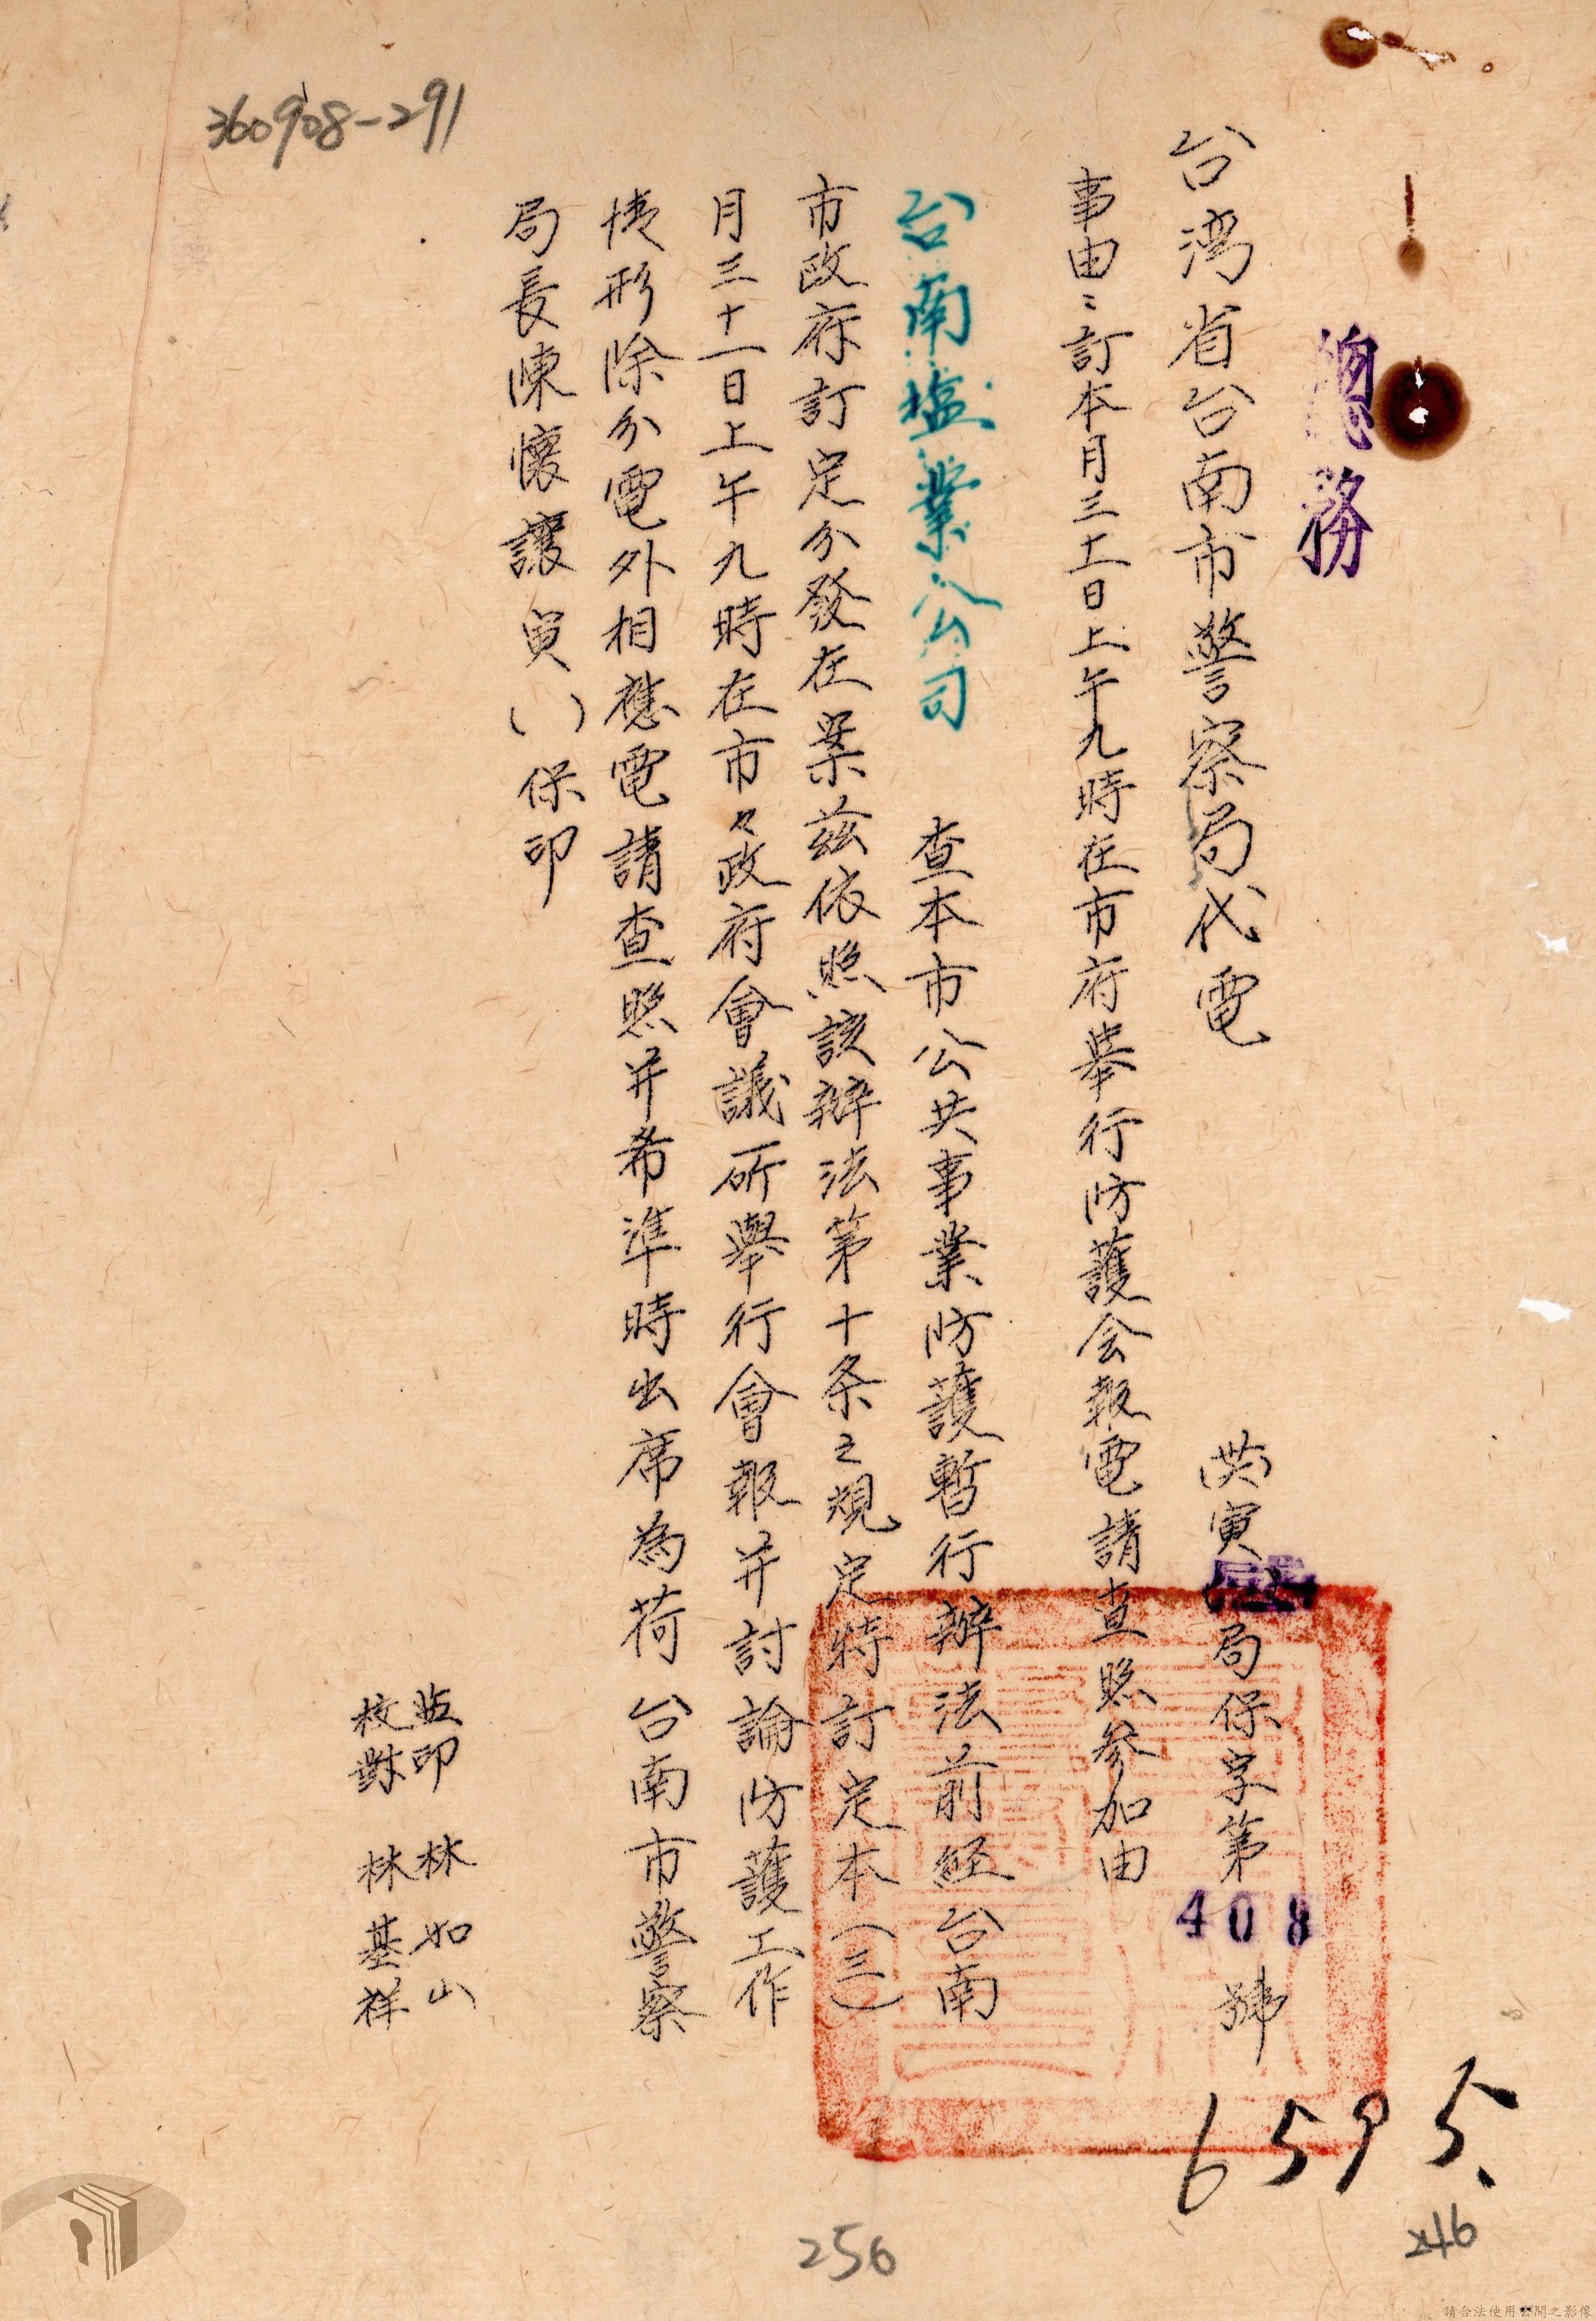 360908-291
總務
台湾省台南市警察局代電
寅
局保字第
408
號
事由：訂本月三十一日上午九時在市府舉行防護会報電請查照參加由
台南塩業公司
查本市公共事業防護暫行辦法前經台南
市政府訂定分發在案茲依照該辦法第十条之規定特訂定本(三)
月三十一日上午九時在市々政府會議所舉行會報并討論防護工作
情形除分電外相應電請查照并希準時出席為荷 台南市警察
局長陳懷讓寅( )保印
監印 林如山
校對 林基祥
6595
246
256
請合法使用公開之影像